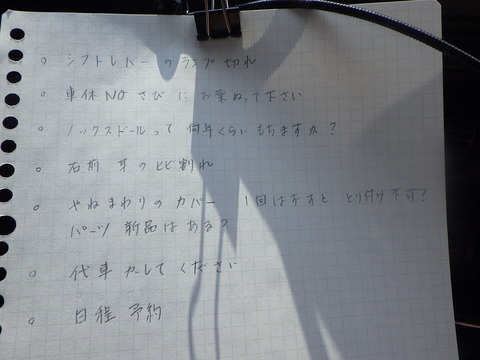 ○ シフトレバー の ランプ切れ
○ 車体 NO さび に お気ぬって下さい
○ ノックスドールって 何年くらい もちますか?
○ 右前 耳 の ヒビ割れ
○ やねまわりの カバー 1回はずすと とり付け不可?
パーツ 新品はある?
○ 代車 かして ください
○ 日程 予約